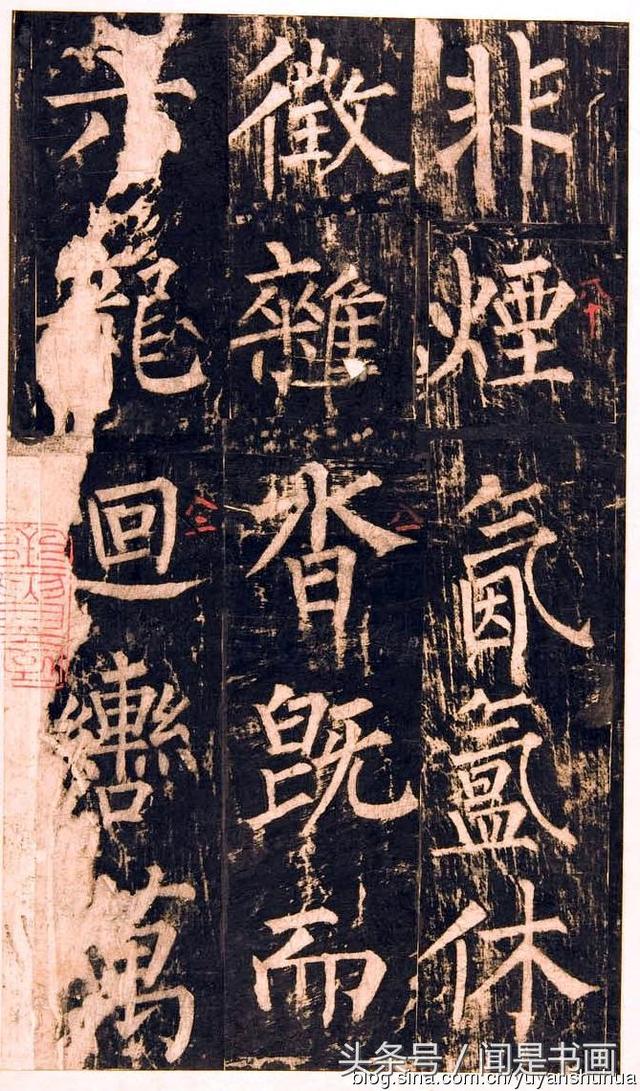 非煙氤氳休
徵雜沓既而
六龍迴轡萬
八十
八二
八三
头条号 / 闻是书画
blog.sina.com.cn/yuyanshunua